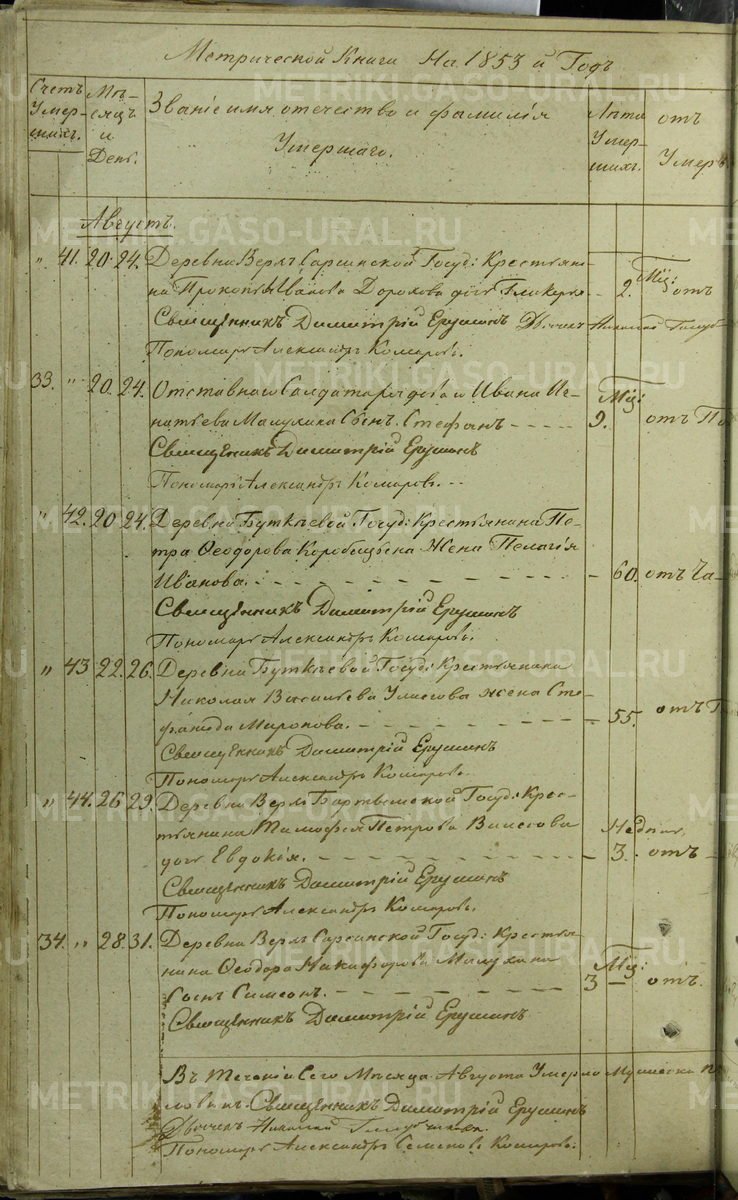 Метрической Книги На 1853 й Годъ
Счетъ Умершихъ. Мѣсяцъ и День. Званіе имя отечество и фамилія Умершаго. Лѣта Умершихъ. отъ Умеръ
Августъ.
„ 41. 20. 24. Деревни Верхъ Сарсинской Госуд: Крестьяни-
на Прокопья Иванова Дорохова дочь Гликерья 2. Мѣс: отъ
Священникъ Димитрій Ерушинъ Дьячекъ Николай
Пономарь Александръ Комаровъ.
33. „ 20. 24. Отставнаго Солдата Ивана Иг-
натьева Сынъ Стефанъ 9. Мѣс: отъ По
Священникъ Димитрій Ерушинъ
Пономарь Александръ Комаровъ.
„ 42. 20. 24. Деревни Буткѣевой Госуд: Крестьянина Пе-
тра Ѳеодорова Жена Пелагія
Иванова. 60. отъ Ча-
Священникъ Димитрій Ерушинъ
Пономарь Александръ Комаровъ.
„ 43 22. 26. Деревни Буткѣевой Госуд: Крестьянина
Николая Васильева жена Сте-
фанида Миронова. 55. отъ
Священникъ Димитрій Ерушинъ
Пономарь Александръ Комаровъ.
„ 44. 26 29. Деревни Верхъ Госуд: Крес-
тьянина Тимофея Петрова
дочь Евдокія. 3. Недѣли отъ
Священникъ Димитрій Ерушинъ
Пономарь Александръ Комаровъ.
34. „ 28. 31. Деревни Верхъ Сарсинской Госуд: Крестья-
нина Ѳеодора Никифорова
Сынъ Симеонъ. 3 Мѣс: отъ
Священникъ Димитрій Ерушинъ
Въ теченіи Сего Мѣсяца Августа Умерло Мужеска
Священникъ Димитрій Ерушинъ
Дьячекъ Николай
Пономарь Александръ Семеновъ Комаровъ.
METRIKI.GASO-URAL.RU